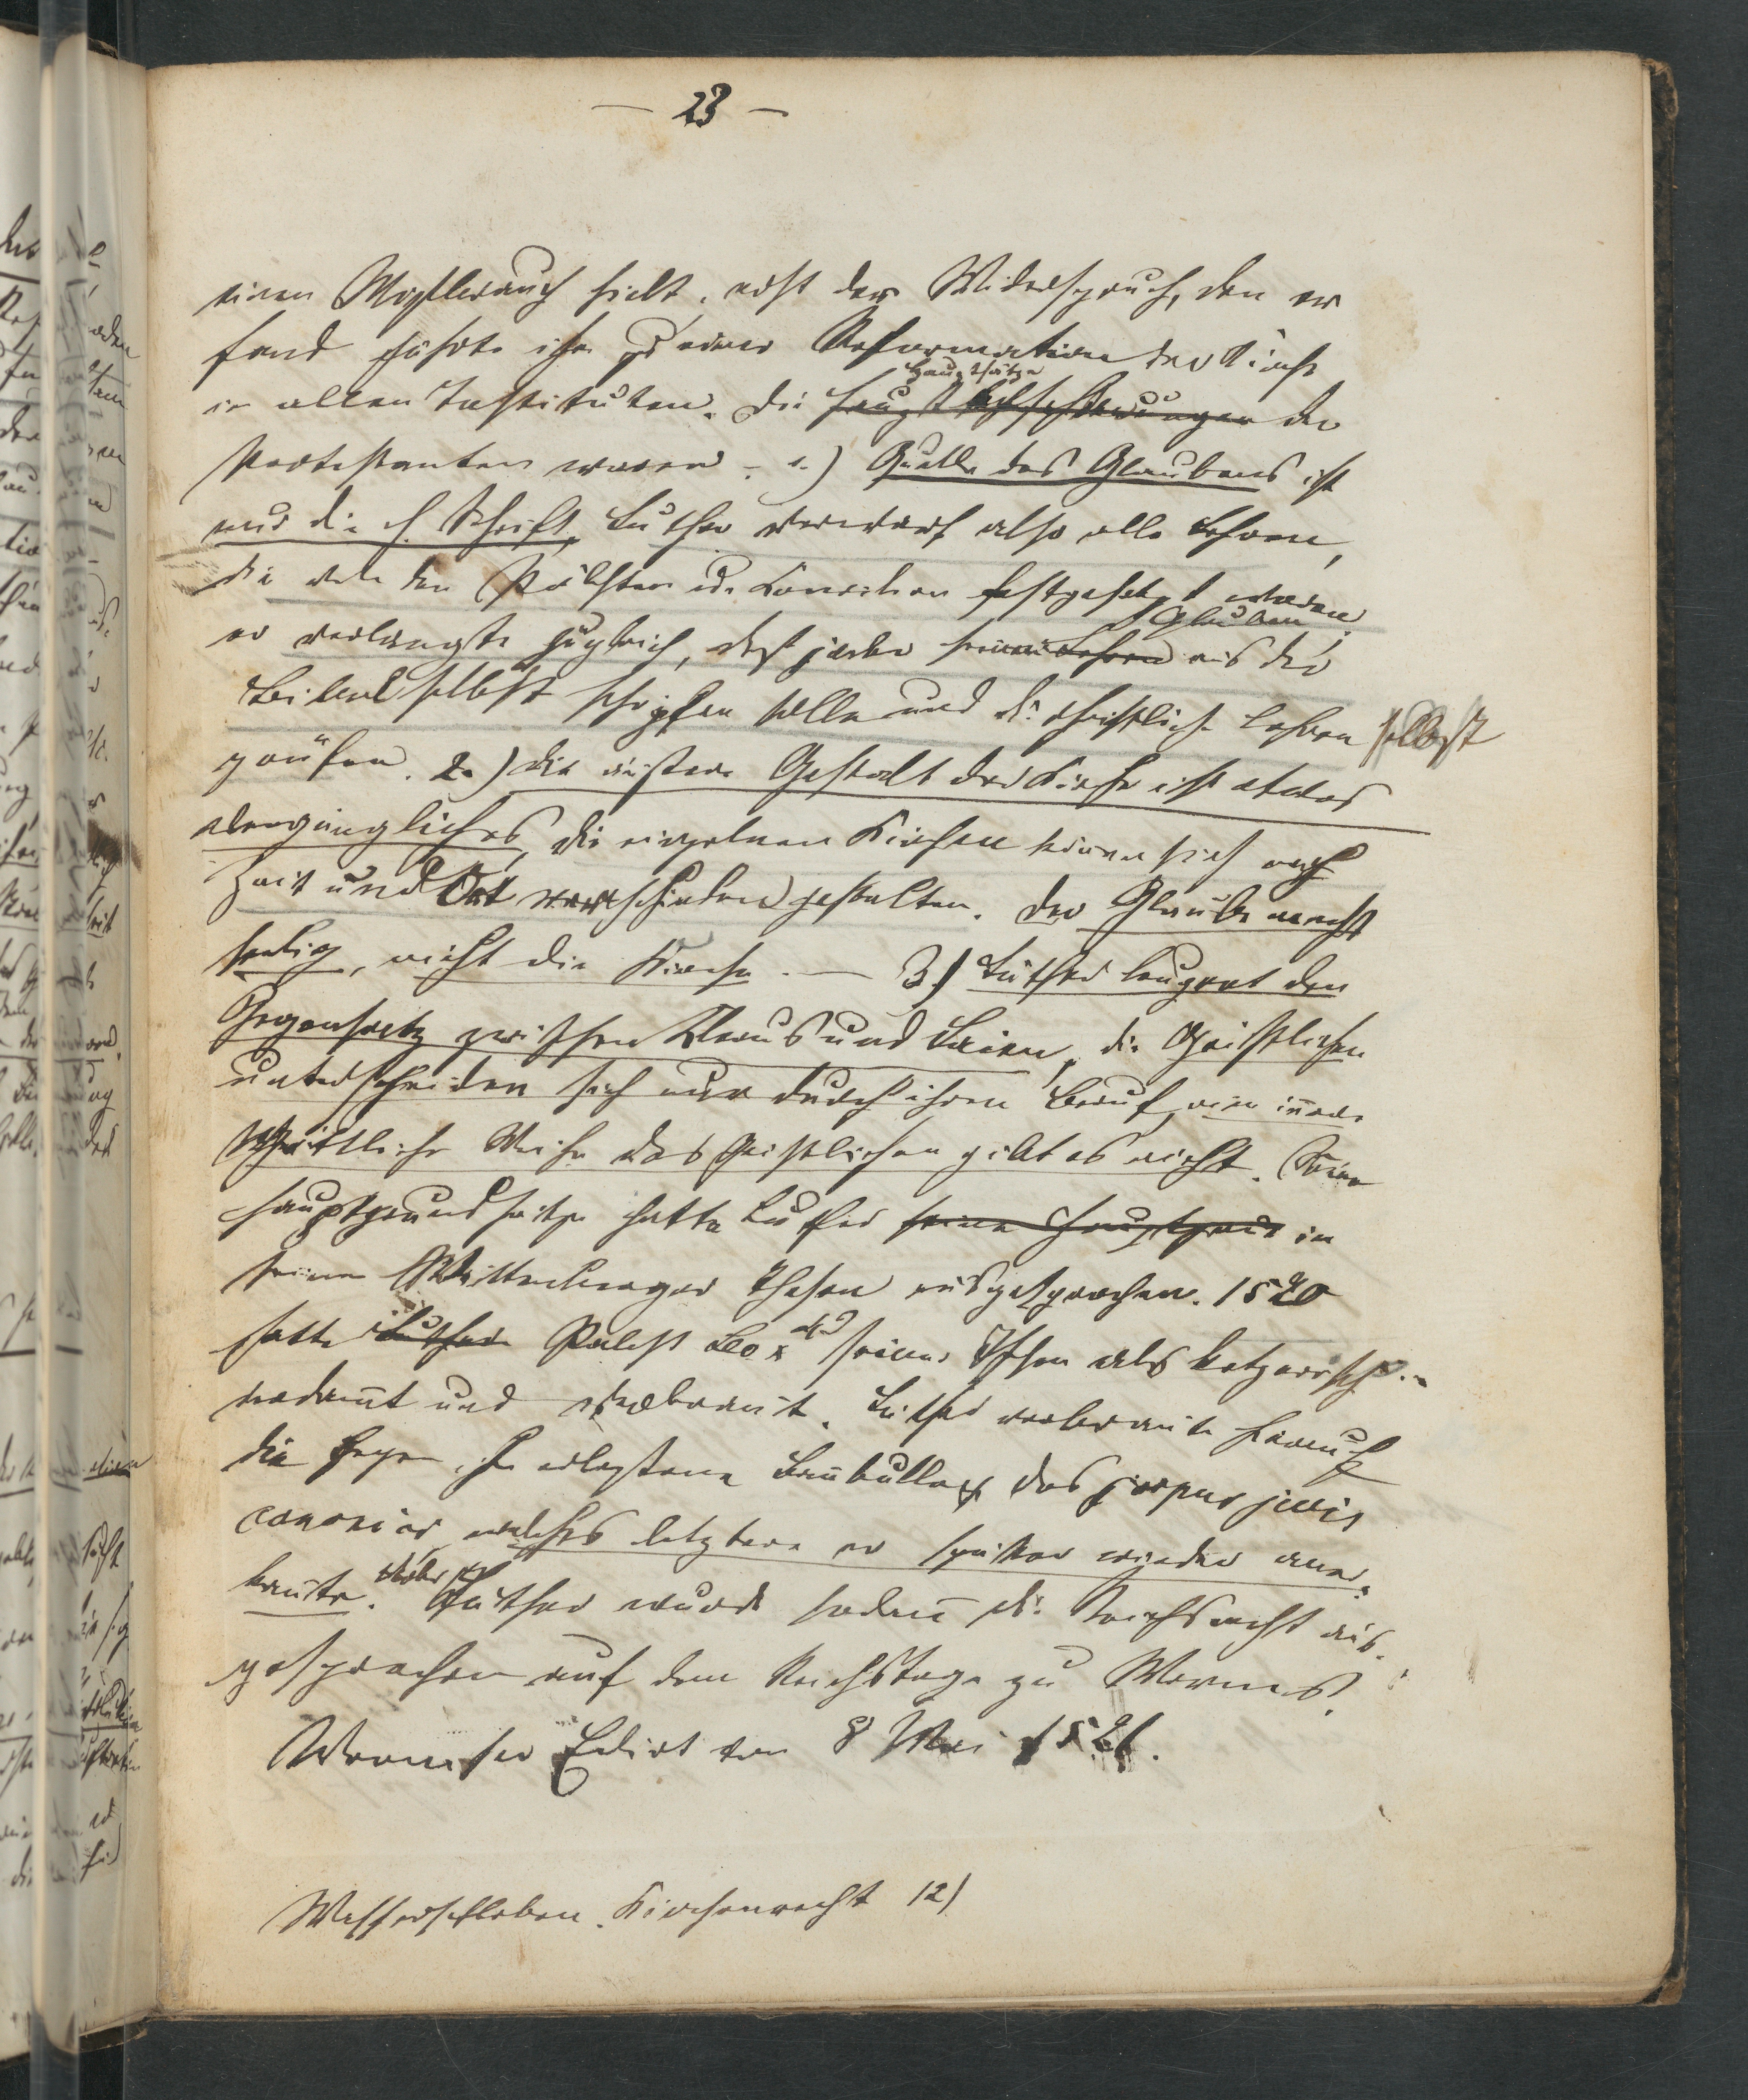 — 23 —
einen Mißbrauch hielt, erst der Widerspruch, den er
fand führte ihn zu einer Reformation der Kirche
Hauptsätze
in allen Instituten. Die der
Protestanten waren. 1.) Quelle des Glaubens ist
nur die h. Schrift, Luther verwarf also alle Lehren,
die von den Päbsten u. Koncilien festgesetzt waren.
Glauben
er verlangte zugleich, daß jeder seinen Lehren aus der
Bibel selbst schöpfen solle und die christliche Lehren selbst
prüfen. 2.) die äußere Gestalt der Kirche ist etwas
vergängliches, die einzelnen Kirchen können sich nach
Zeit und Ort verschieden gestalten. Der Glaube macht
selig, nicht die Kirche. — 3.) Luther leugnet den
Gegensatz zwischen Klerus und Laien, die Geistlichen
unterscheiden sich nur durch ihren Beruf, eine innere
Weihe des Geistlichen gibt es nicht. Seine
Hauptgrundsätze hatte Luther seine Hauptgrund in
seinen Wittenberger Thesen ausgesprochen. 1520
hatte Luther Pabst Leo X seine Thesen als ketzerisch
verdammt und verbrannt. Luther verbrannte hierauf
die gegen ihn erlassene Bannbulle & das corpus juris
canonici, welches letztere er später wieder aner-
kannte. Über Luther wurde sodann die Reichsacht aus-
gesprochen auf dem Reichstage zu Worms.
Wormser Edict vom 8 Mai 1521.
Wasserschleben. Kirchenrecht 12)